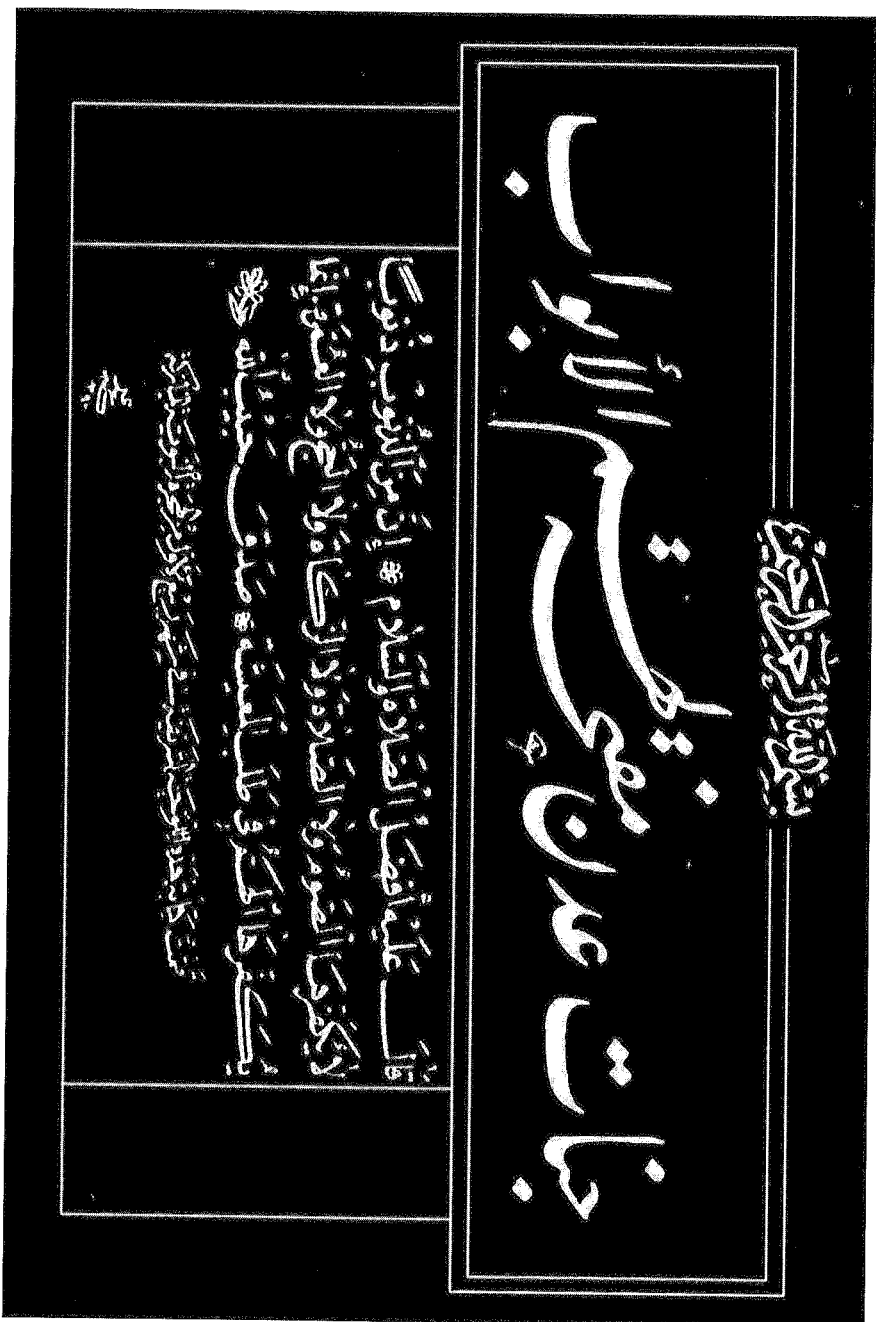 بسم الله الرحمن الرحيم
جنات عدن مفتحة لهم الأبواب
قَالَ عَلَيْهِ أَفْضَلُ الصَّلَاةِ وَالسَّلَامِ * إِنَّ مِنَ الذُّنُوبِ ذُنُوبًا
لَا يُكَفِّرُهَا الصَّوْمُ وَلَا الصَّلَاةُ وَلَا الزَّكَاةُ وَلَا الْحَجُّ وَلَا الْعُمْرَةُ إِنَّمَا
يُكَفِّرُهَا الْهَمُّ فِي طَلَبِ الْمَعِيشَةِ * صَدَقَ حَبِيبُ اللهِ